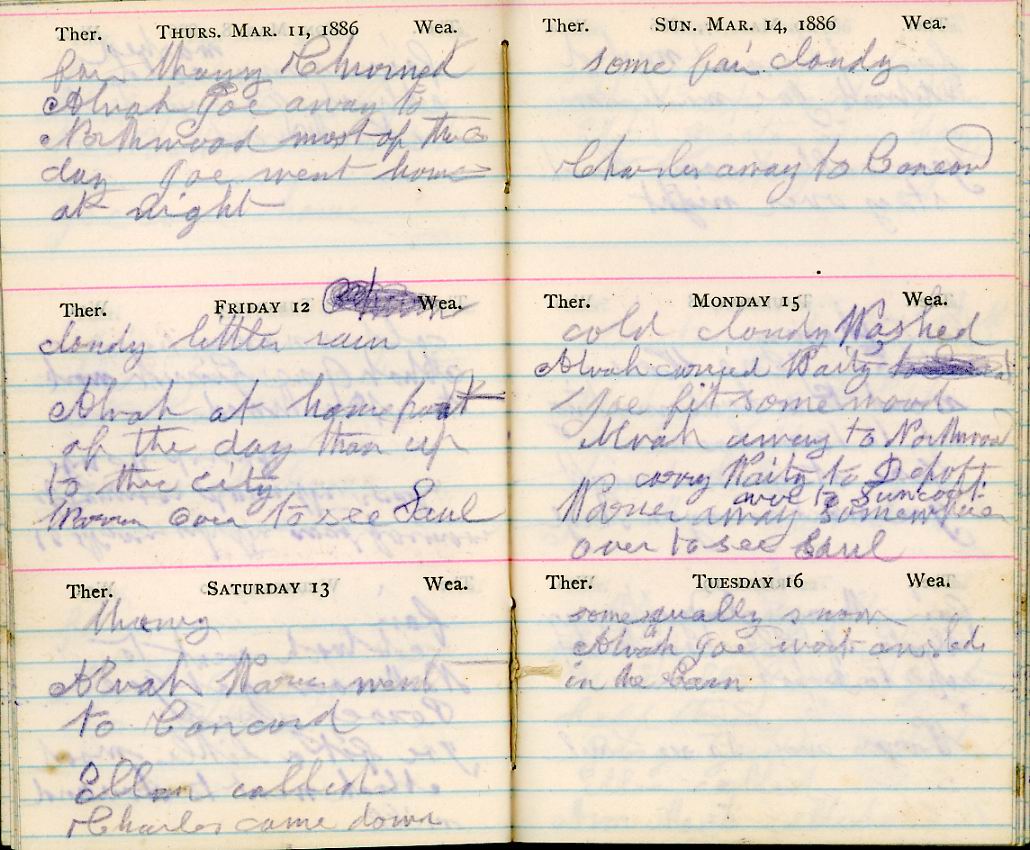 Ther. THURS. MAR. 11, 1886 Wea.
fair thawy Churned
Alvah Joe away to
Northwood most of the
day Joe went home
at night
Ther. FRIDAY 12 Wea.
cloudy little rain
Alvah at home part
of the day than up
to the city
Warren over to see Saul
Ther. SATURDAY 13 Wea.
thawy
Alvah Warren went
to Concord
Ellen called
Charles came down
Ther. SUN. MAR. 14, 1886 Wea.
some fair cloudy
Charles away to Concord
Ther. MONDAY 15 Wea.
cold cloudy Washed
Alvah carried Waity
Joe fit some wood
Alvah away to Northwood
carry Waity to Depot
over to Suncook
Warren away somewhere
over to see Saul
Ther. TUESDAY 16 Wea.
some squally snow
Alvah Joe work on sleds
in the Barn